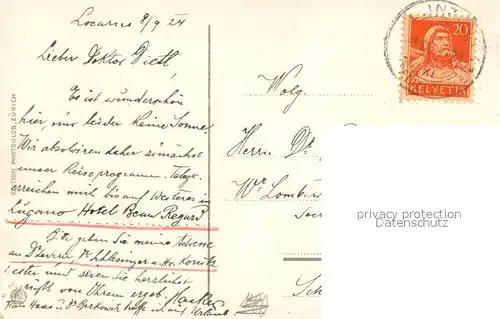 Locarno 8/9 24
Lieber Doktor Dietl,
Es ist wunderschön
hier, nur leider keine Sonne
Wir absolvieren daher zunächst
unser Reiseprogramm. Telegr.
erreichen mich bis auf Weiteres in
Lugano Hotel Beau Regard
Bitte geben Sie meine Adresse
an Dr Levin, Dr Schlesinger u. Hr. Konitz
weiter und seien Sie herzlichst
gegrüßt von Ihrem ergeb.
Frau Haas u. Dr Berkowitz auf Urlaub
EDITION PHOTOGLOB, ZÜRICH
20
HELVETIA
Wolg.
Herrn Dr.
Wr. Lombar
privacy protection
watermark